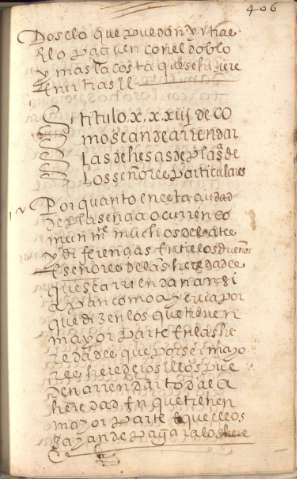 406
Dos e lo que pueda
lo paguen con el doblo
y mas la costa que se
Titulo x.x.xiij de co
mo se an de arrendar
las dehesas de plaª de
los señores particulares
Por quanto en esta ciudad
de plasençia ocurren co
mun mẽ muchos debates
y diferençias entre los dueños
e señores de las heredades
que se arriendan ansi
a pan como a yerva por
que dizen los que tienen
mayor parte en las he
redades que por ser mayo
res herederos ellos pue
den arrendar toda la
heredad en que tienen
mayor parte e que ellos
ayan de pagar a los here